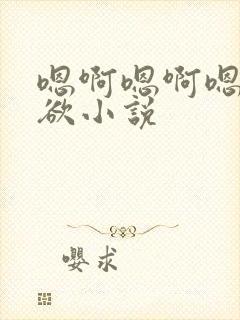 嗯啊嗯啊嗯
欲小説
嚶求